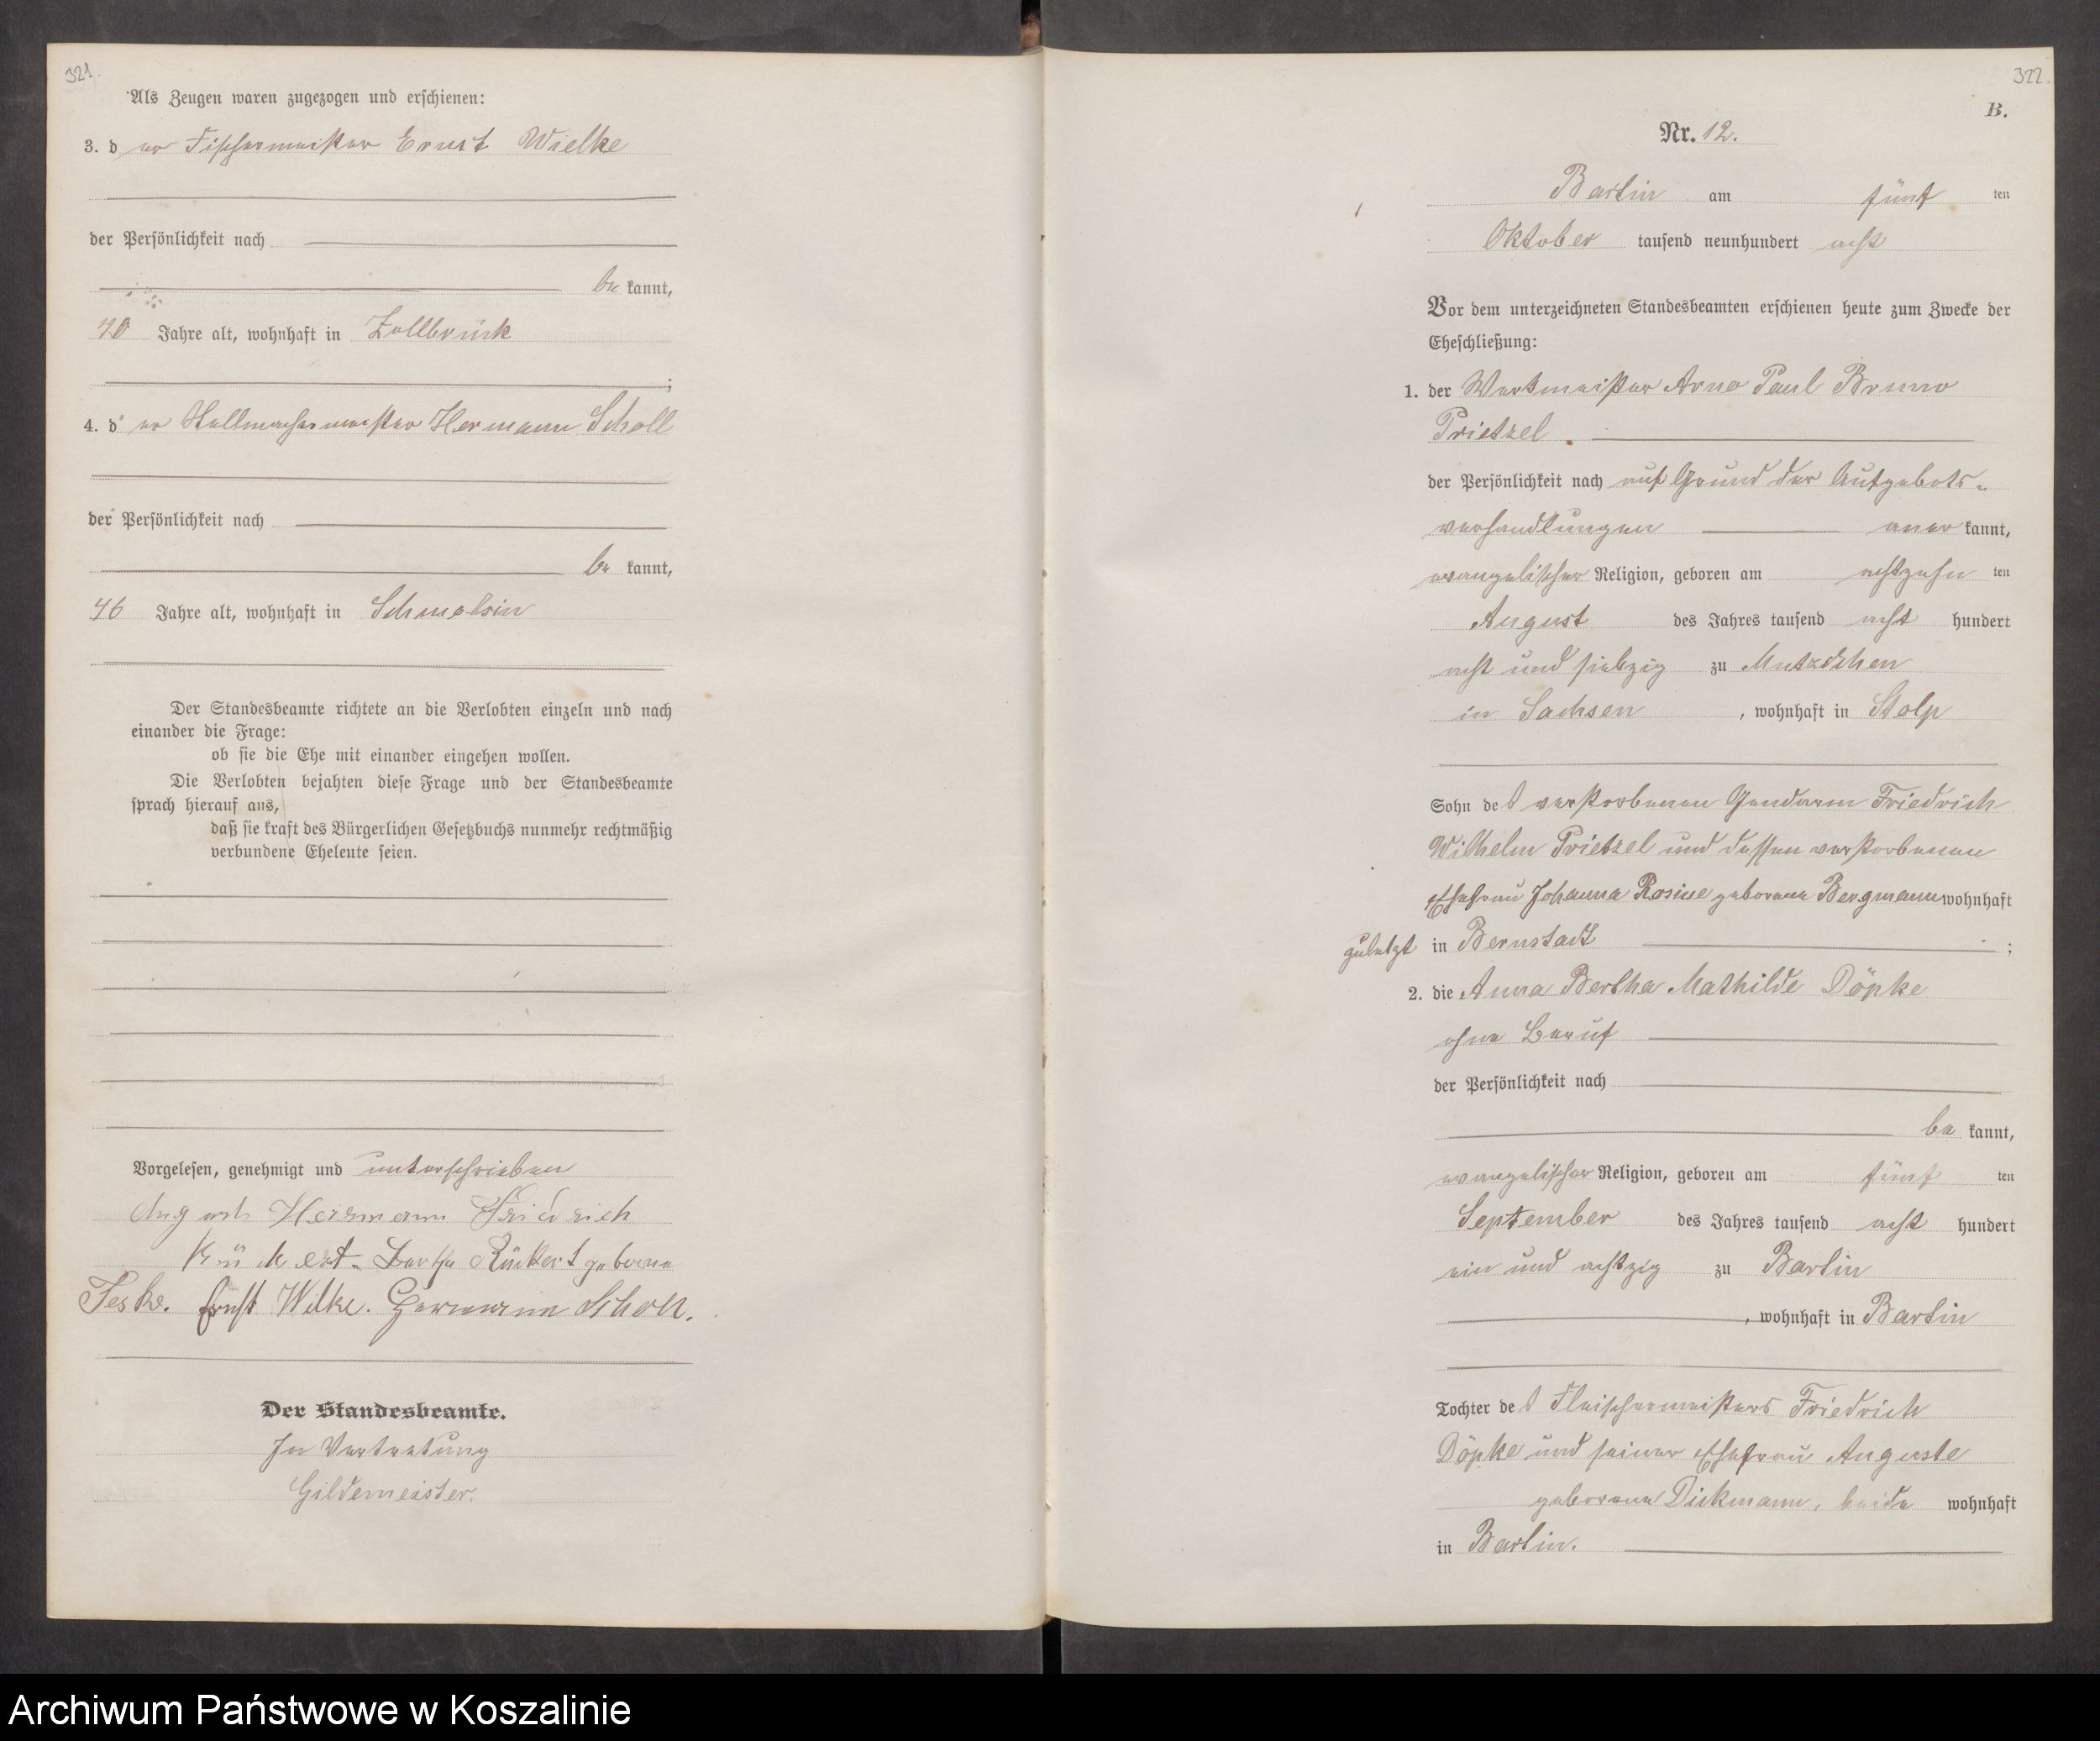 321.
Als Zeugen waren zugezogen und erschienen:
3. der Tischlermeister Ernst Wielke
der Persönlichkeit nach
be kannt,
40 Jahre alt, wohnhaft in Zollbrück
;
4. der Stellmachermeister Hermann Scholl
der Persönlichkeit nach
be kannt,
46 Jahre alt, wohnhaft in Schmolsin
Der Standesbeamte richtete an die Verlobten einzeln und nach
einander die Frage:
ob sie die Ehe mit einander eingehen wollen.
Die Verlobten bejahten diese Frage und der Standesbeamte
sprach hierauf aus,
daß sie kraft des Bürgerlichen Gesetzbuchs nunmehr rechtmäßig
verbundene Eheleute seien.
Vorgelesen, genehmigt und unterschrieben
August Hermann Friedrich
Rückert. Bertha Rückert geborene
Teske. Ernst Wilke. Hermann Scholl.
Der Standesbeamte.
In Vertretung
Gildemeister.
322.
B.
Nr. 12.
Bartin am fünf ten
Oktober tausend neunhundert acht
Vor dem unterzeichneten Standesbeamten erschienen heute zum Zwecke der
Eheschließung:
1. der Werkmeister Arno Paul Bruno
Prietzel
der Persönlichkeit nach auf Grund der Aufgebots-
verhandlungen aner kannt,
evangelischer Religion, geboren am achtzehn ten
August des Jahres tausend acht hundert
acht und siebzig zu Mutzschen
in Sachsen, wohnhaft in Stolp
Sohn des verstorbenen Gendarm Friedrich
Wilhelm Prietzel und dessen verstorbenen
Ehefrau Johanna Rosine geborene Bergmann wohnhaft
zuletzt in Bernstadt ;
2. die Anna Bertha Mathilde Döpke
ohne Beruf
der Persönlichkeit nach
be kannt,
evangelischer Religion, geboren am fünf ten
September des Jahres tausend acht hundert
ein und achtzig zu Bartin
, wohnhaft in Bartin
Tochter des Fleischermeisters Friedrich
Döpke und seiner Ehefrau Auguste
geborene Dickmann, beide wohnhaft
in Bartin.
Archiwum Państwowe w Koszalinie